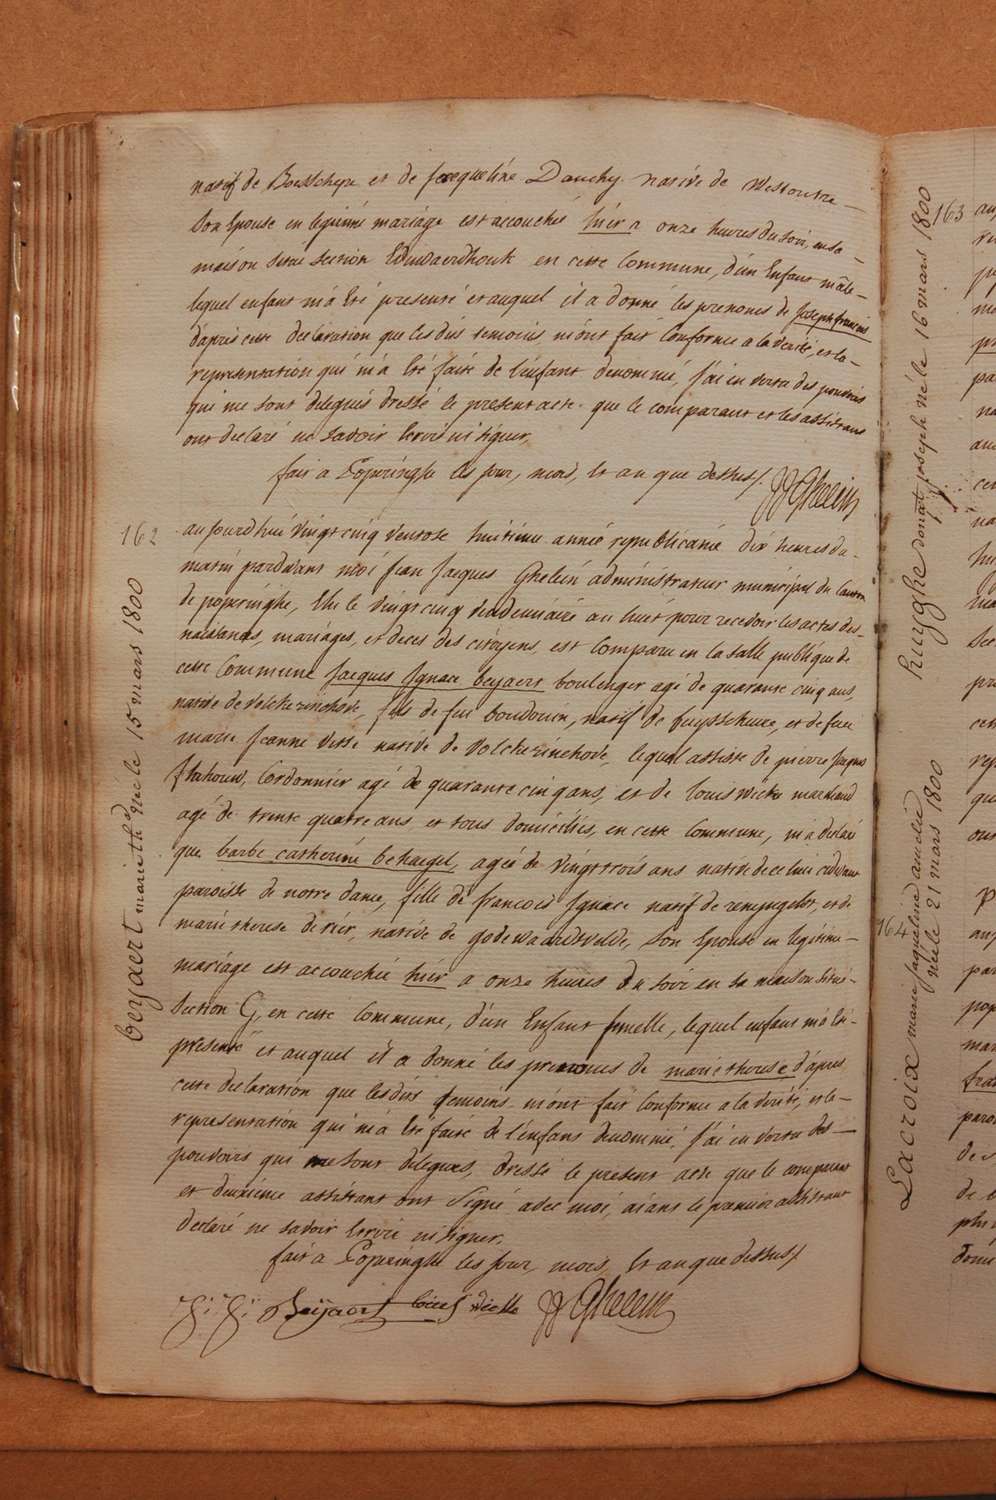 natif de Boesschepe et de jacqueline Dauchy native de Westoutre
Son Epouse en legitime mariage est accouché hier a onze heures du soir, en sa
maison située section Eduwaerdhouk en cette Commune, d'un Enfant mâle
lequel enfant m'a été presenté et auquel il a donné les prenoms de joseph francois
d'après cette declaration que les dits temoins m'ont fait Conforme a la verité, et la
representation qui m'a été faite de l'enfant denommé, j'ai en vertu des pouvoirs
qui me sont delegués dressé le present acte que le comparant et les assistans
ont declaré ne savoir Ecrire ni signer,
fait a Poperinghe les jour, mois, et an que dessus/.
JJ Ghelein
162
aujourd'hui vingt cinq ventose huitieme année republicaine dix heures du
matin pardevant moi jean jacques Ghelein administrateur municipal du Canton
de poperinghe, Elu le vingt cinq vendemiaire an huit pour recevoir les actes des
naissances, mariages, et deces des citoyens, est Comparu en la salle publique de
cette Commune jacques jgnace beyaert boulenger agé de quarante cinq ans,
native de Volckerinchove, fils de feu boudouin, natif de buysscheure, et de feue
marie jeanne Vette native de Volckerinchove, lequel assiste de pierre jacques
Stahouw, Cordonnier agé de quarante cinq ans, et de louis wiels marchand
agé de trente quatre ans et tous domiciliés, en cette Commune, m'a declaré
que barbe catherine behaegel, ageé de vingt trois ans native de ce lieu cidevant
paroisse de notre dame, fille de francois jgnace natif de renyngelst, et de
marie therese de rier, native de godewaersvelde, Son Epouse en legitime
mariage est accouchée hier a onze heures du soir en sa maison située
Section G, en cette Commune, d'un Enfant femelle, lequel enfant m'a été
presenté et auquel il a donné les prenoms de marie therese d'après
cette declaration que les dits temoins m'ont fait Conforme a la verité, et la
representation qui m'a été faite de l'enfant denommé, j'ai en vertu des
pouvoirs qui me sont delegués, dressé le present acte que le comparant
et deuxieme assistant ont signé avec moi, aiant le premier assistant
declaré ne savoir Ecrire ni signer,
fait a Poperinghe les jour, mois, et an que dessus/
J: J: Beijaert louis wiells JJ Ghelein
beyaert marie th née le 15 mars 1800
163
huyghe donat joseph né le 16 mars 1800
164
Lacroix marie jaqueline amelie
née le 21 mars 1800